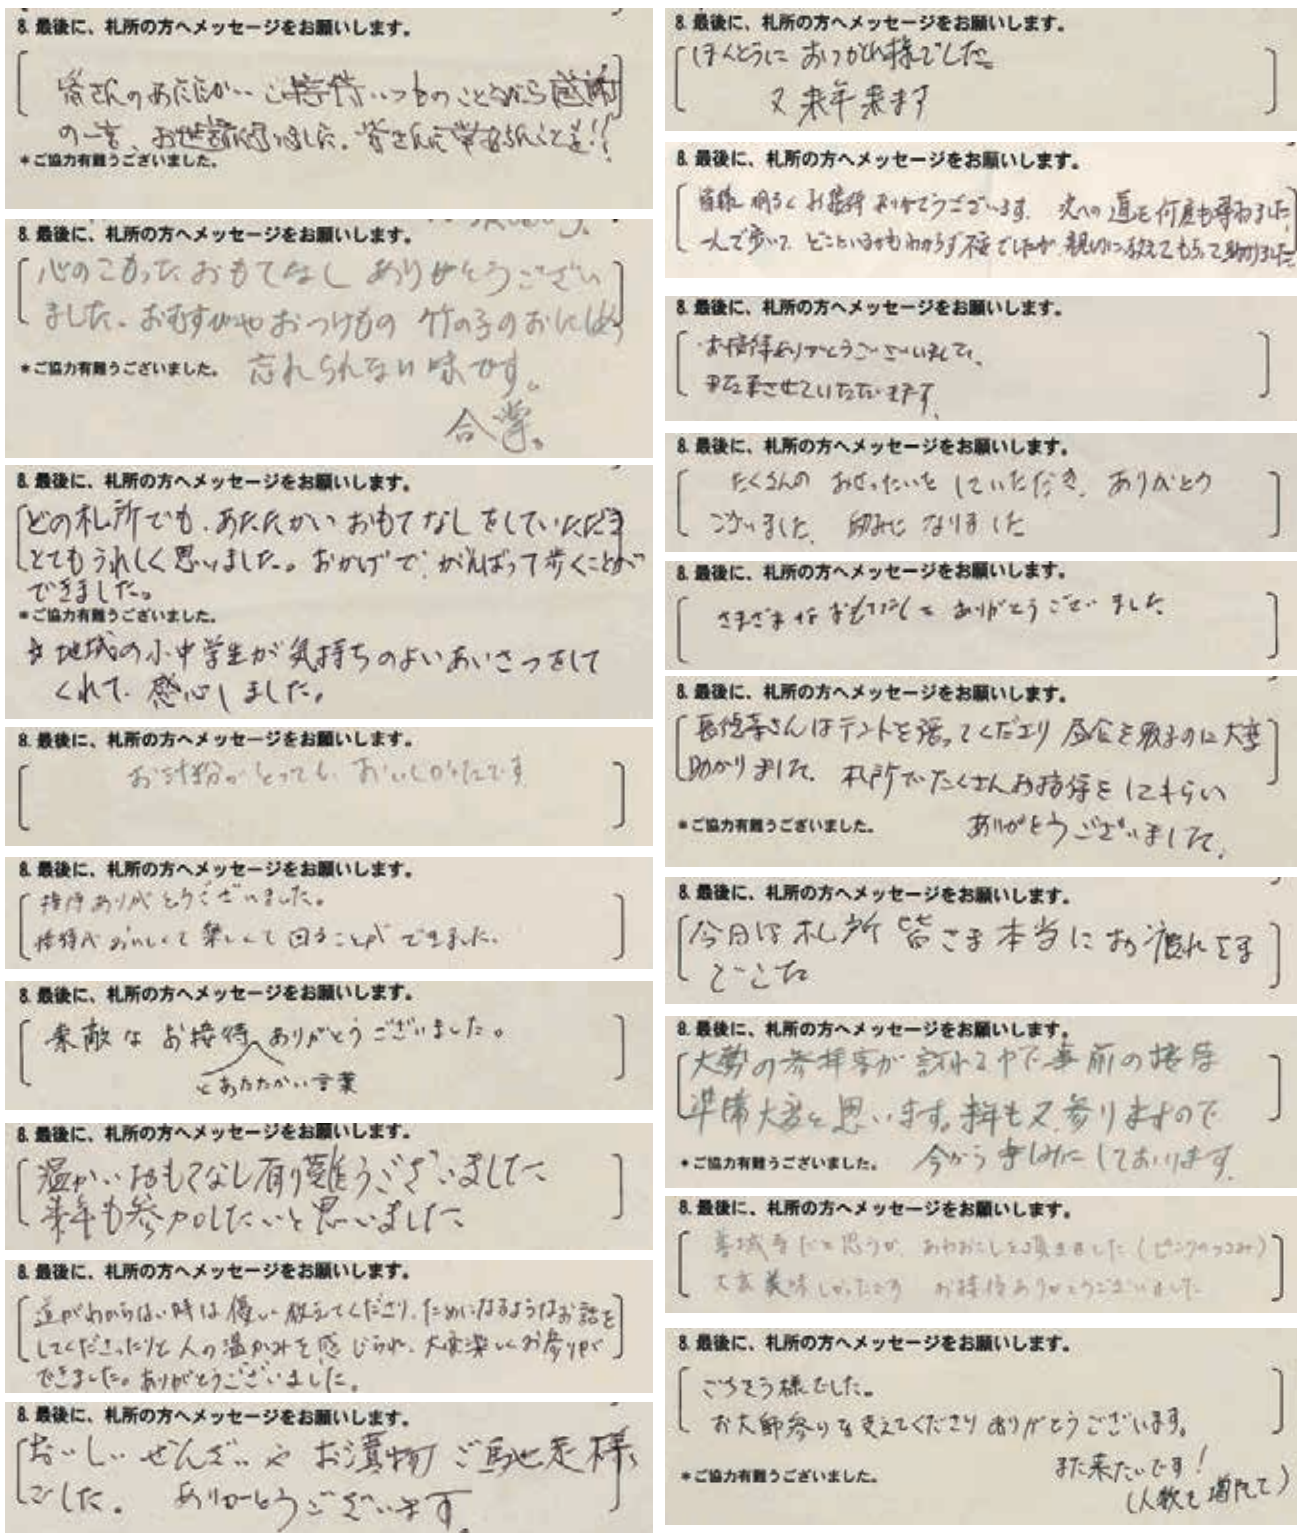 8. 最後に、札所の方へメッセージをお願いします。
皆さんのあたたかい ご接待いつものことながら感謝
の一言、お世話になりました。皆さんに幸あらんことを!!
*ご協力有難うございました。
8. 最後に、札所の方へメッセージをお願いします。
心のこもったおもてなし ありがとうござい
ました。おむすびやおつけもの 竹の子のおにしめ
*ご協力有難うございました。 忘れられない味です。
合掌。
8. 最後に、札所の方へメッセージをお願いします。
どの札所でも、あたたかいおもてなしをしていただき
とてもうれしく思いました。おかげで、がんばって歩くことが
できました。
*ご協力有難うございました。
地域の小中学生が気持ちのよいあいさつをして
くれて、感心しました。
8. 最後に、札所の方へメッセージをお願いします。
お汁粉がとっても、おいしかったです
8. 最後に、札所の方へメッセージをお願いします。
接待ありがとうございました。
接待がおいしくて楽しくて回ることができました。
8. 最後に、札所の方へメッセージをお願いします。
素敵なお接待ありがとうございました。
とあたたかい言葉
8. 最後に、札所の方へメッセージをお願いします。
温かいおもてなし有り難うございました
来年も参加したいと思いました
8. 最後に、札所の方へメッセージをお願いします。
道がわからない時は優しい教えてくださり、ためになるようなお話を
してくださったりと人の温かみを感じられ、大変楽しくお参りが
できました。ありがとうございました。
8. 最後に、札所の方へメッセージをお願いします。
おいしいぜんざいやお漬物ご馳走様
でした。 ありがとうございます。
8. 最後に、札所の方へメッセージをお願いします。
ほんとうに おつかれ様でした。
又来年来ます
8. 最後に、札所の方へメッセージをお願いします。
皆様 明るくお接待ありがとうございます。 次への道を何度も尋ねました
一人で歩いて どこにいるかもわからず不安でしたが、親切に教えてもらって助かりました
8. 最後に、札所の方へメッセージをお願いします。
お接待ありがとうございました。
また来させていただきます。
8. 最後に、札所の方へメッセージをお願いします。
たくさんの おせったいを していただき、ありがとう
ございました。 励みになりました
8. 最後に、札所の方へメッセージをお願いします。
さまざまなおもてなしを ありがとうございました
8. 最後に、札所の方へメッセージをお願いします。
長徳寺さんはテントを張ってくださり 昼食を取るのに大変
助かりました。 札所でたくさんお接待を
*ご協力有難うございました。 ありがとうございました。
8. 最後に、札所の方へメッセージをお願いします。
今日は札所皆さま本当にお疲れさま
でした
8. 最後に、札所の方へメッセージをお願いします。
大勢の参拝客が訪れる中で事前の接待
準備大変と思います。来年も又参りますので
*ご協力有難うございました。 今から楽しみにしております。
8. 最後に、札所の方へメッセージをお願いします。
だと思うが、あわおこしを頂きました(ピンクのつつみ)
大変美味しかったです お接待ありがとうございました
8. 最後に、札所の方へメッセージをお願いします。
ごちそう様でした。
お大師参りを支えてくださりありがとうございます。
*ご協力有難うございました。 また来たいです!
(人数を増やして)